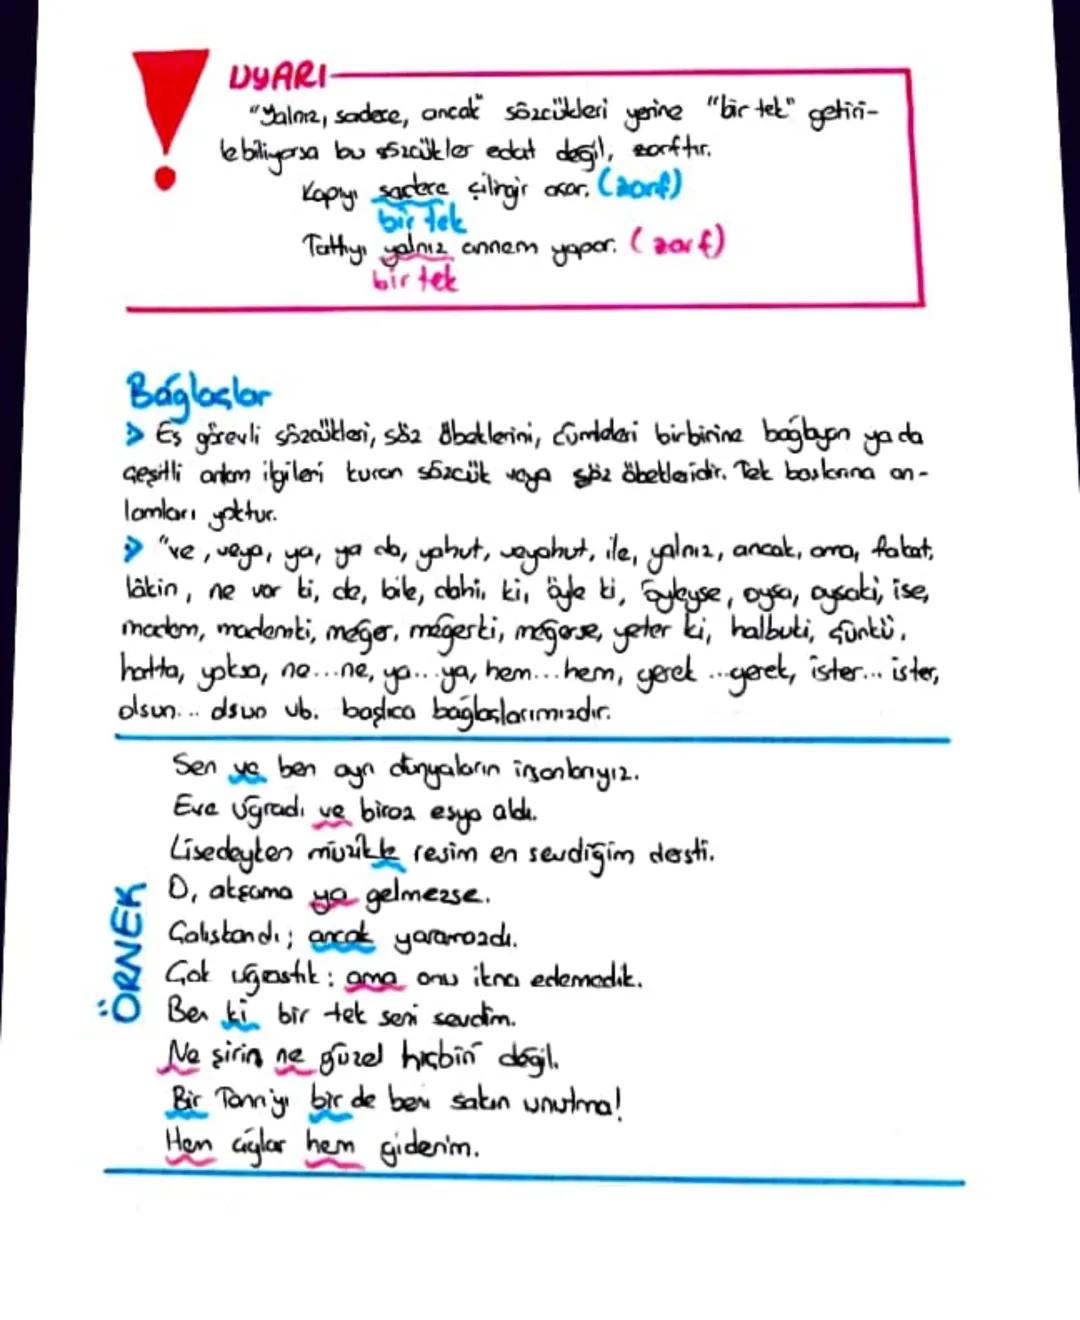 UYARI
"Yalnız, sadece, ancak" sözcükleri yerine "bir tek" getiri-
lebiliyorsa bu sözcükler edat değil, zarftır.
Kapıyı sadece çilingir açar. (zarf)
bir tek
Tatlıyı yalnız annem yapar. (zarf)
bir tek
Bağlaçlar
> Eş görevli sözcükleri, söz öbeklerini, cümleleri birbirine bağlayan ya da
çeşitli anlam ilgileri kuran sözcük veya söz öbekleridir. Tek başlarına an-
lamları yoktur.
> "ve, veya, ya, ya da, yahut, veyahut, ile, yalnız, ancak, ama, fakat,
lâkin, ne var ki, de, bile, dahi, ki, öyle ki, öyleyse, oysa, oysaki, ise,
madem, mademki, meğer, meğerki, meğerse, yeter ki, halbuki, çünkü,
hatta, yoksa, ne...ne, ya...ya, hem...hem, gerek...gerek, ister...ister,
olsun...olsun vb. başlıca bağlaçlarımızdır.
ÖRNEK
Sen ve ben ayrı dünyaların insanlarıyız.
Eve uğradı ve biraz eşya aldı.
Lisedeyken müzikle resim en sevdiğim dersti.
O, akşama ya gelmezse.
Çalışkandı; ancak yaramazdı.
Çok uğraştık; ama onu ikna edemedik.
Ben ki bir tek seni sevdim.
Ne şirin ne güzel hiçbiri değil.
Bir Tanrı'yı bir de beni sakın unutma!
Hem ağlar hem giderim.